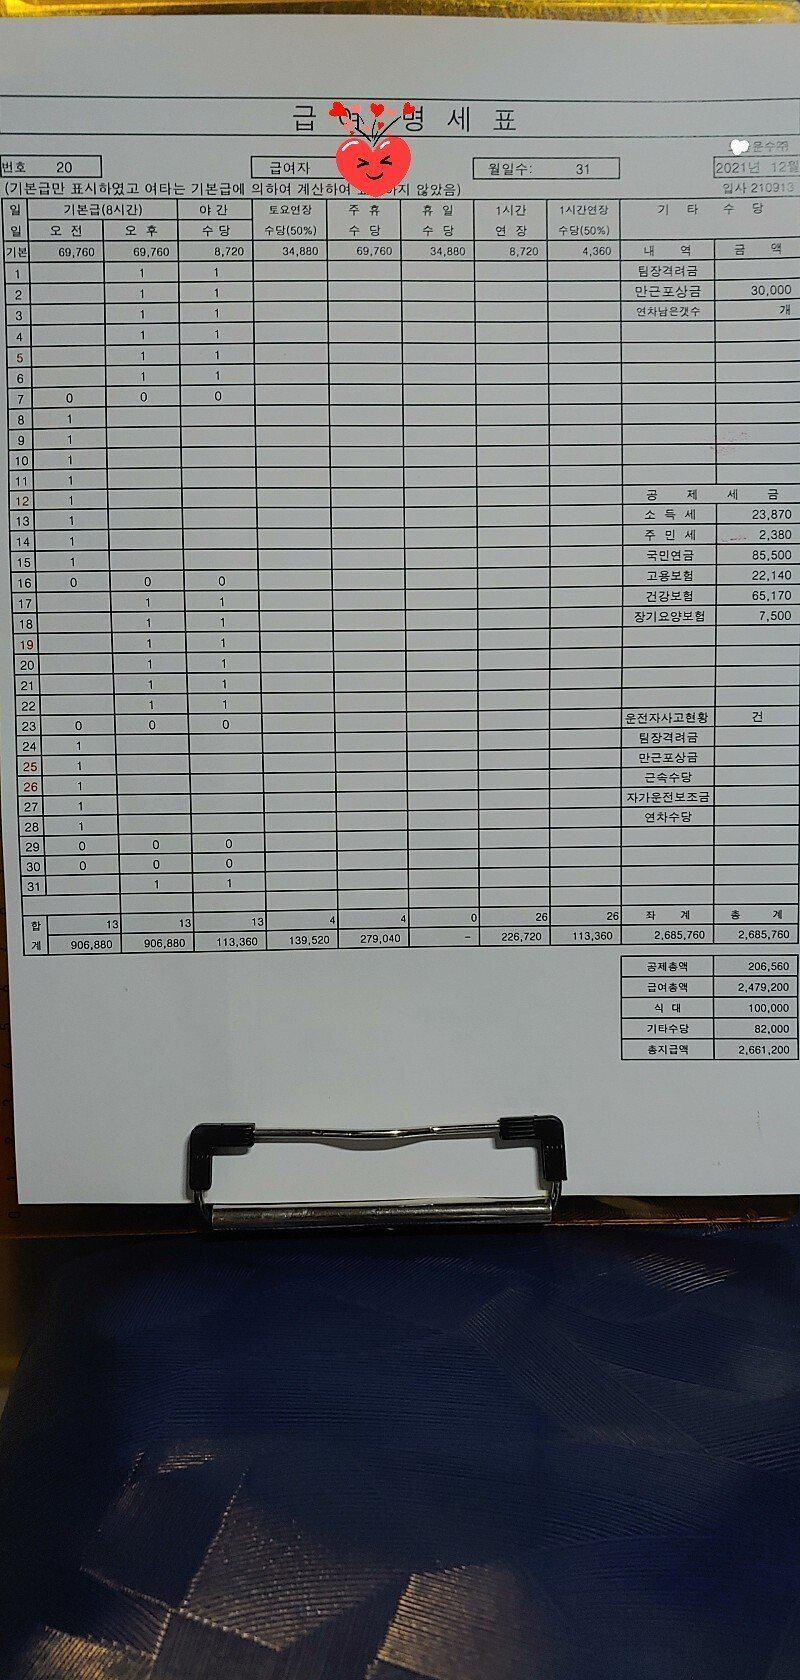 급 명 세 표
운수㈜
번호 20 급여자 월일수: 31 2021년 12월
(기본급만 표시하였고 여타는 기본급에 의하여 계산하여 하지 않았음) 입사 210913
일 기본급(8시간) 야 간 토요연장 주 휴 휴 일 1시간 1시간연장 기 타 수 당
일 오 전 오 후 수 당 수당(50%) 수 당 수 당 연 장 수당(50%)
기본 69,760 69,760 8,720 34,880 69,760 34,880 8,720 4,360 내 역 금 액
1 1 1 팀장격려금
2 1 1 만근포상금 30,000
3 1 1 연차남은갯수 개
4 1 1
5 1 1
6 1 1
7 0 0 0
8 1
9 1
10 1
11 1
12 1 공 제 세 금
13 1 소 득 세 23,870
14 1 주 민 세 2,380
15 1 국민연금 85,500
16 0 0 0 고용보험 22,140
17 1 1 건강보험 65,170
18 1 1 장기요양보험 7,500
19 1 1
20 1 1
21 1 1
22 1 1
23 0 0 0 운전자사고현황 건
24 1 팀장격려금
25 1 만근포상금
26 1 근속수당
27 1 자가운전보조금
28 1 연차수당
29 0 0 0
30 0 0 0
31 1 1
합 13 13 13 4 4 0 26 26 좌 계 총 계
계 906,880 906,880 113,360 139,520 279,040 - 226,720 113,360 2,685,760 2,685,760
공제총액 206,560
급여총액 2,479,200
식 대 100,000
기타수당 82,000
총지급액 2,661,200